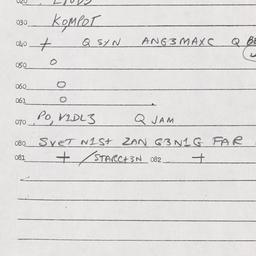 020
030 KOMPOT
040 + Q SYN ANG3MAYC Q
050 O
060 O
061 O
070 PO, VIDL3 Q JAM
080 SVET N1St ZAN G3N1G FAR
081 + /STARCt3N 082 +